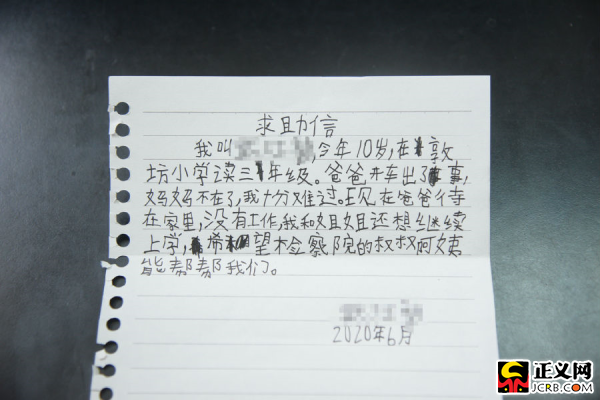 求助信
我叫,今年10岁,在敦
坊小学读三年级。爸爸开车出了事,
妈妈不在了,我十分难过。现在爸爸待
在家里,没有工作,我和姐姐还想继续
上学,希望检察院的叔叔阿姨
能帮帮我们。
2020年6月
正义网
JCRB.COM